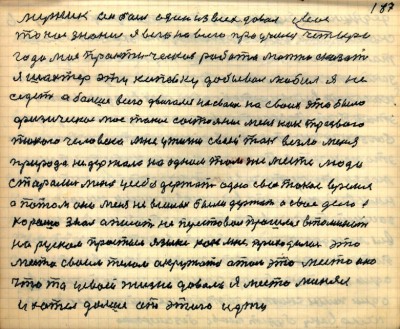 187
мужик он был один из всех довал свое
то кое знания я всего на всего проучил четыре
года моя практическая работа можно сказать
я шахтер эту копейку добывал любил я не
сидеть а больше всего двигался на своих это было
физическое мое такое состояния меня как трезвого
такого человека мне у жизни своей так везло меня
природа не держала на одном том же месте люди
старались меня у себя держать одно свое такое время
а потом они меня не в силах были держать а свое дело я
хорошо знал а писать не пустовал пришлось вспоминать
на руском простым языке как мне приходилось это
место своим телом окружать а там это место оно
что то у своей жизни довала я место менял
и хотел дальше от этого идти